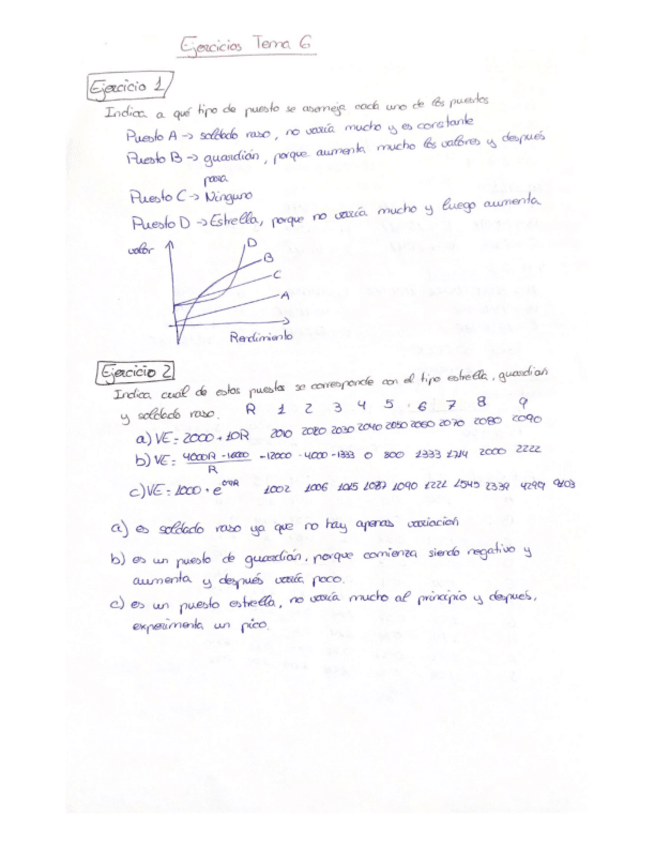 Ejercicios Tema 6
Ejercicio 1
Indica a qué tipo de puesto se asemeja cada uno de los puestos
Puesto A -> soldado raso, no varía mucho y es constante
Puesto B -> guardián, porque aumenta mucho los valores y después
para
Puesto C -> Ninguno
Puesto D -> Estrella, porque no varía mucho y luego aumenta
valor
D
B
C
A
Rendimiento
Ejercicio 2
Indica cuál de estos puestos se corresponde con el tipo estrella, guardián
y soldado raso. R 1 2 3 4 5 6 7 8 9
a) VE = 2000 + 10R 2010 2020 2030 2040 2050 2060 2070 2080 2090
b) VE = 4000R - 16000 / R -12000 -4000 -1333 0 800 1333 1714 2000 2222
c) VE = 1000 + e 1002 1006 1015 1037 1090 1221 1545 2339 4299 9103
a) es soldado raso ya que no hay apenas variación
b) es un puesto de guardián, porque comienza siendo negativo y
aumenta y después varía poco.
c) es un puesto estrella, no varía mucho al principio y después,
experimenta un pico.